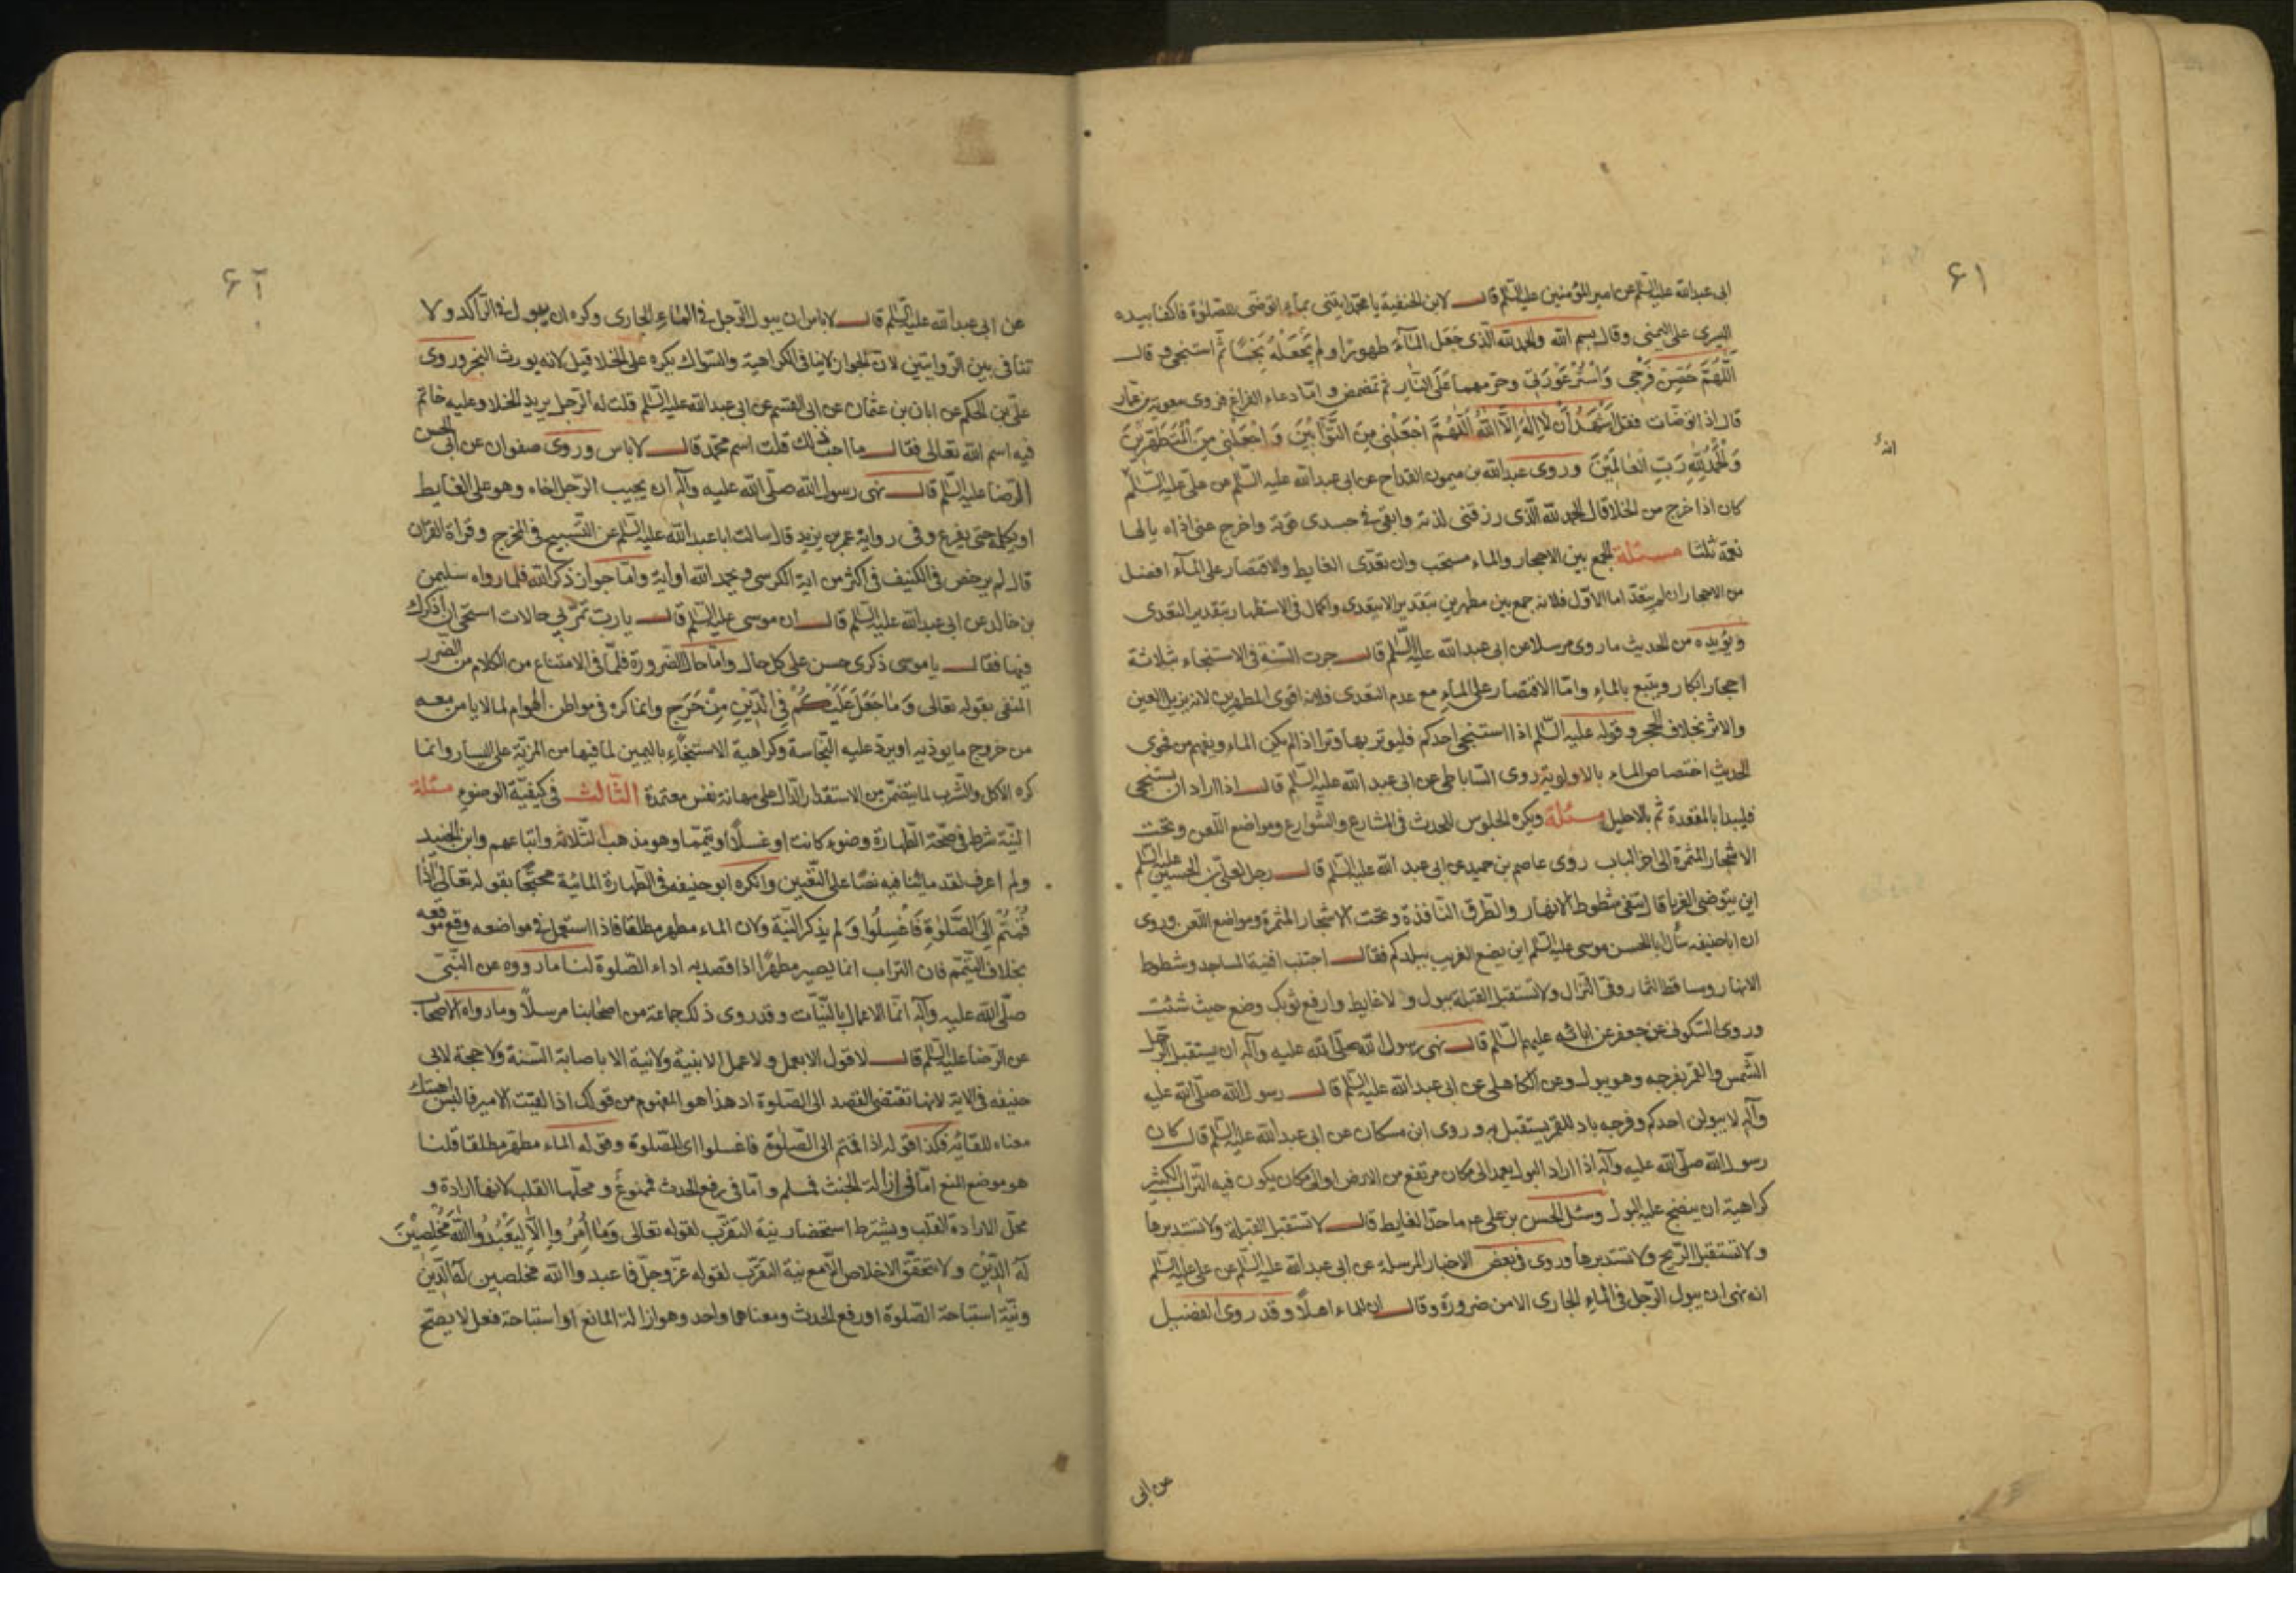 ٦١
ابى عبدالله عليه السّلم عن امير المؤمنين عليه السّلم قال لابن الحنفية يا محمد ايتنى بماء اتوضى للصّلوة فاكفا بيده
اليسرى على اليمنى وقال بسم الله والحمدلله الّذى جَعَل المآءَ طهورًا ولم يَجْعَلْهُ نَجِسًا ثم استنجى و قال
اَللّهمَّ حَصِّن فَرْجى وَاسْتُرْ عَوْرَتى وحرّمهما عَلَى النّار ثم تمضمض و امّا دعاء الفراغ فروى معوية بن عمّار
قال اذا توضّات فقل اَشْهَدُ اَنْ لا اِلهَ اِلّا اللهُ اَللّهُمَّ اجْعَلْنى مِنَ التَّوّابينَ وَ اجْعَلنى مِنَ الْمُتَطَهّرينَ
انه
وَالْحَمْدُ لِلّهِ رَبِّ الْعالَمينَ وروى عبدالله بن ميمون القداح عن ابى عبدالله عليه السّلم عن على عليه السّلم
كان اذا خرج من الخلا قال الحمد لله الّذى رزقنى لذته وابقى فى جسدى قوته واخرج عنى اذاه يالها
نعمة ثلثا مسئلة الجمع بين الاحجار والماء مستحب وان تعدّى الغايط والاقتصار على المآء افضل
من الاحجار ان لم يتعدّ اما الاوّل فلانه جمع بين مطهرين بتقدير الايتعدى واكمال فى الاستظهار بتقدير التعدى
ويؤيده من الحديث ما روى مرسلا عن ابى عبدالله عليه السّلم قال جرت السّنة فى الاستنجاء بثلاثة
احجار ابكار ويتبع بالماء وامّا الاقتصار على الماء مع عدم التعدى فلانه اقوى المطهرين لانه يزيل العين
والاثر بخلاف الحجر وقوله عليه السّلم اذا استنجى احدكم فليوتر بها وترا اذا لم يكن الماء ويفهم من فحوى
الحديث اختصاص الماء بالاولوية روى السّاباطى عن ابى عبد الله عليه السّلم قال اذا اراد ان يستنجى
فليبدا بالمقعدة ثم بالاحليل مسئلة ويكره الجلوس للحدث فى المشارع والشّوارع ومواضع اللّعن وتحت
الاشجار المثمرة الى اخر الباب روى عاصم بن حميد عن ابى عبد الله عليه السّلم قال رجل لعلىّ بن الحسين عليه السّلم
اين يتوضى الغربا قال يتقى شطوط الانهار والطّرق النّافذة وتحت الاشجار المثمرة ومواضع اللّعن وروى
ان اباحنيفه سأل ابالحسن موسى عليه السّلم اين يضع الغريب ببلدكم فقال اجتنب افنية المساجد وشطوط
الانهار ومساقط الثمار وفى النزال ولا تستقبل القبلة ببول ولا غايط وارفع ثوبك وضع حيث شئت
وروى السّكونى عن جعفر عن ابائه عليهم السّلم قال نهى رسول الله صلّى الله عليه وآله ان يستقبل الرّجل
الشّمس والقمر بفرجه وهو يبول وعن الكاهلى عن ابى عبدالله عليه السّلم قال رسول الله صلّى الله عليه
وآله لا يبولن احدكم وفرجه باد للقمر يستقبل به وروى ابن مسكان عن ابى عبدالله عليه السّلم قال كان
رسول الله صلّى الله عليه وآله اذا اراد البول يعمد الى مكان مرتفع من الارض او الى مكان يكون فيه التّراب الكثير
كراهية ان ينضح عليه البول وسئل الحسن بن على ع ما حدّ الغايط قال لا تستقبل القبلة ولا تستدبرها
ولا تستقبل الرّيح ولا تستدبرها وروى فى بعض الاخبار المرسله عن ابى عبدالله عليه السّلم عن على عليه السّلم
انه نهى ان يبول الرّجل فى الماء الجارى الا من ضرورة وقال ان للماء اهلاً وقد روى الفضيل
عن ابى
٦٢
عن ابى عبدالله عليه السّلم قال لا باس ان يبول الرّجل فى الماء الجارى وكره ان يبول فى الرّاكد ولا
تنافى بين الرّوايتين لانّ الجواز لا ينافى الكراهية والسّواك يكره على الخلا قيل لانه يورث البخر وروى
علىّ بن الحكم عن ابان بن عثمان عن ابى القسم عن ابى عبدالله عليه السّلم قلت له الرّجل يريد الخلا وعليه خاتم
فيه اسم الله تعالى فقال ما احبّ ذلك قلت اسم محمّد قال لا باس وروى صفوان عن ابى الحسن
الرّضا عليه السّلم قال نهى رسول الله صلّى الله عليه وآله ان يجيب الرّجل اخاه وهو على الغايط
او يكلمه حتى يفرغ وفى رواية عمر بن يزيد قال سالت اباعبدالله عليه السّلم عن التّسبيح فى المخرج وقراة القران
قال لم يرخص فى الكنيف فى اكثر من اية الكرسى ويحمد الله او اية وامّا جواز ذكر الله فلما رواه سليمن
بن خالد عن ابى عبدالله عليه السّلم قال ان موسى عليه السّلم قال يا ربّ تمرّ بى حالات استحى ان اذكرك
فيها فقال يا موسى ذكرى حسن على كل حال وامّا حال الضّرورة فلمّا فى الامتناع من الكلام من الضّرر
المنفى بقوله تعالى وَمَا جَعَلَ عَلَيْكُمْ فِى الدّينِ مِنْ حَرَجٍ وانما كره فى مواطن الهوام لما لا يامن معه
من خروج ما يوذيه او يردّ عليه النّجاسة وكراهية الاستنجاء باليمين لما فيها من المزيّة على اليسار وانما
كره الاكل والشّرب لما يتضمّن من الاستقذار الدّال على مهانة نفس معتمدة الثّالث فى كيفيّة الوضوء مسئلة
النّيّة شرط فى صحّة الطّهارة وضوء كانت او غسلاً او تيمّما وهو مذهب الثلاثه واتباعهم وابن الجنيد
ولم اعرف لقدمائنا فيه نصّا على التّعيين وانكره ابو حنيفه فى الطّهارة المائيّة محتجّا بقوله تعالى اِذا
قُمْتُمْ اِلَى الصَّلوٰةِ فَاغْسِلُوا وَلم يذكر النيّة ولان الماء مطهر مطلقا فاذا استعمل فى مواضعه وقع موقعه
بخلاف التيمّم فان التراب انما يصير مطهرًا اذا قصد به اداء الصّلوة لنا ما رووه عن النّبىّ
صلّى الله عليه وآله انّما الاعمال بالنّيّات وقد روى ذلك جماعة من اصحابنا مرسلاً وما رواه الاصحاب
عن الرّضا عليه السّلم قال لا قول الا بعمل ولا عمل الا بنية ولا نية الا باصابة السّنة ولا حجة لابى
حنيفه فى الاية لانها تقتضى القصد الى الصّلوة اذ هذا هو المفهوم من قولك اذا لقيت الامير فالبس اهبتك
معناه للقائه فكذا قوله اذا قمتم الى الصّلوة فاغسلوا اى للصّلوة وقوله الماء مطهّر مطلقا قلنا
هو موضع المنع امّا فى ازالة الخبث فسلم وامّا فى رفع الحدث فممنوع و محلّها القلب لانها ارادة و
محلّ الارادة القلب ويشترط استحضار نية التقرّب لقوله تعالى وَمَا اُمِرُوا اِلّا لِيَعْبُدُوا اللهَ مُخْلِصينَ
لَهُ الدّين ولا يتحقّق الاخلاص الّا مع نية التقرّب لقوله عزّ وجلّ فاعبدوا الله مخلصين له الدّين
ونيّة استباحة الصّلوة او رفع الحدث ومعناهما واحد وهو ازالة المانع او استباحة فعل لا يصحّ